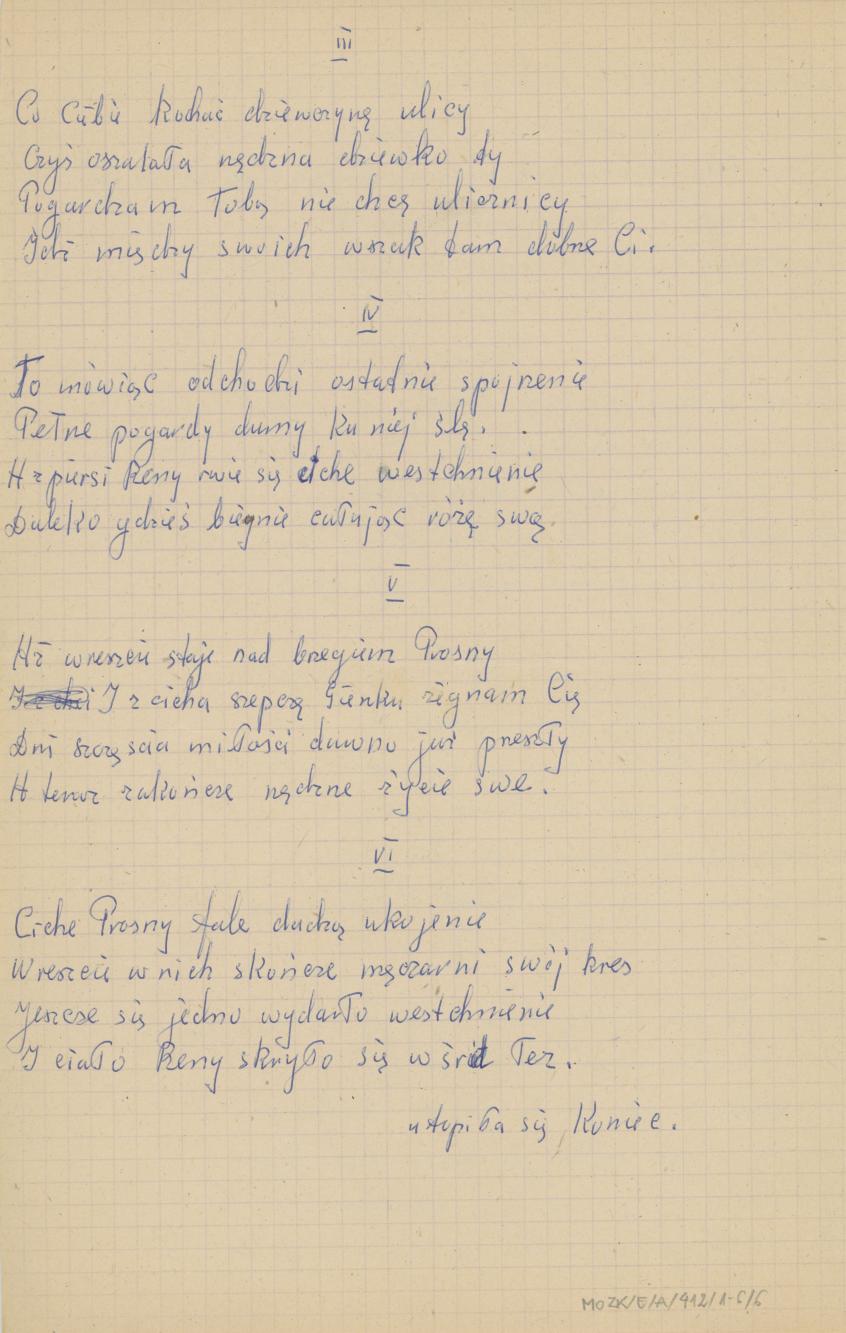 III
Co Ciebie kochać dziewczynę ulicy
Czyś oszalała nędzna dziewko ty
Pogardzam Tobą nie chcę ulicznicy
Idź między swoich wszak tam dobrze Ci.
IV
To mówiąc odchodzi ostatnie spojrzenie
Pełne pogardy dumy ku niej śle.
A z piersi Reny rwie się ciche westchnienie
Daleko gdzieś biegnie całując różę swą
V
Aż wreszcie staje nad brzegiem Prosny
I z cicha szepczę Gienku żegnam Cię
Dni szczęścia miłości dawno już preszły
A teraz zakończe nędzne życie swe.
VI
Ciche Prosny fale dadzą ukojenie
Wreszcie w nich skończe męczarni swój kres
Jeszcze się jedno wydarło westchnienie
I ciało Reny skryło się wśród łez.
utopiła się Koniec.
MOZK/E/A/412/1-6/6